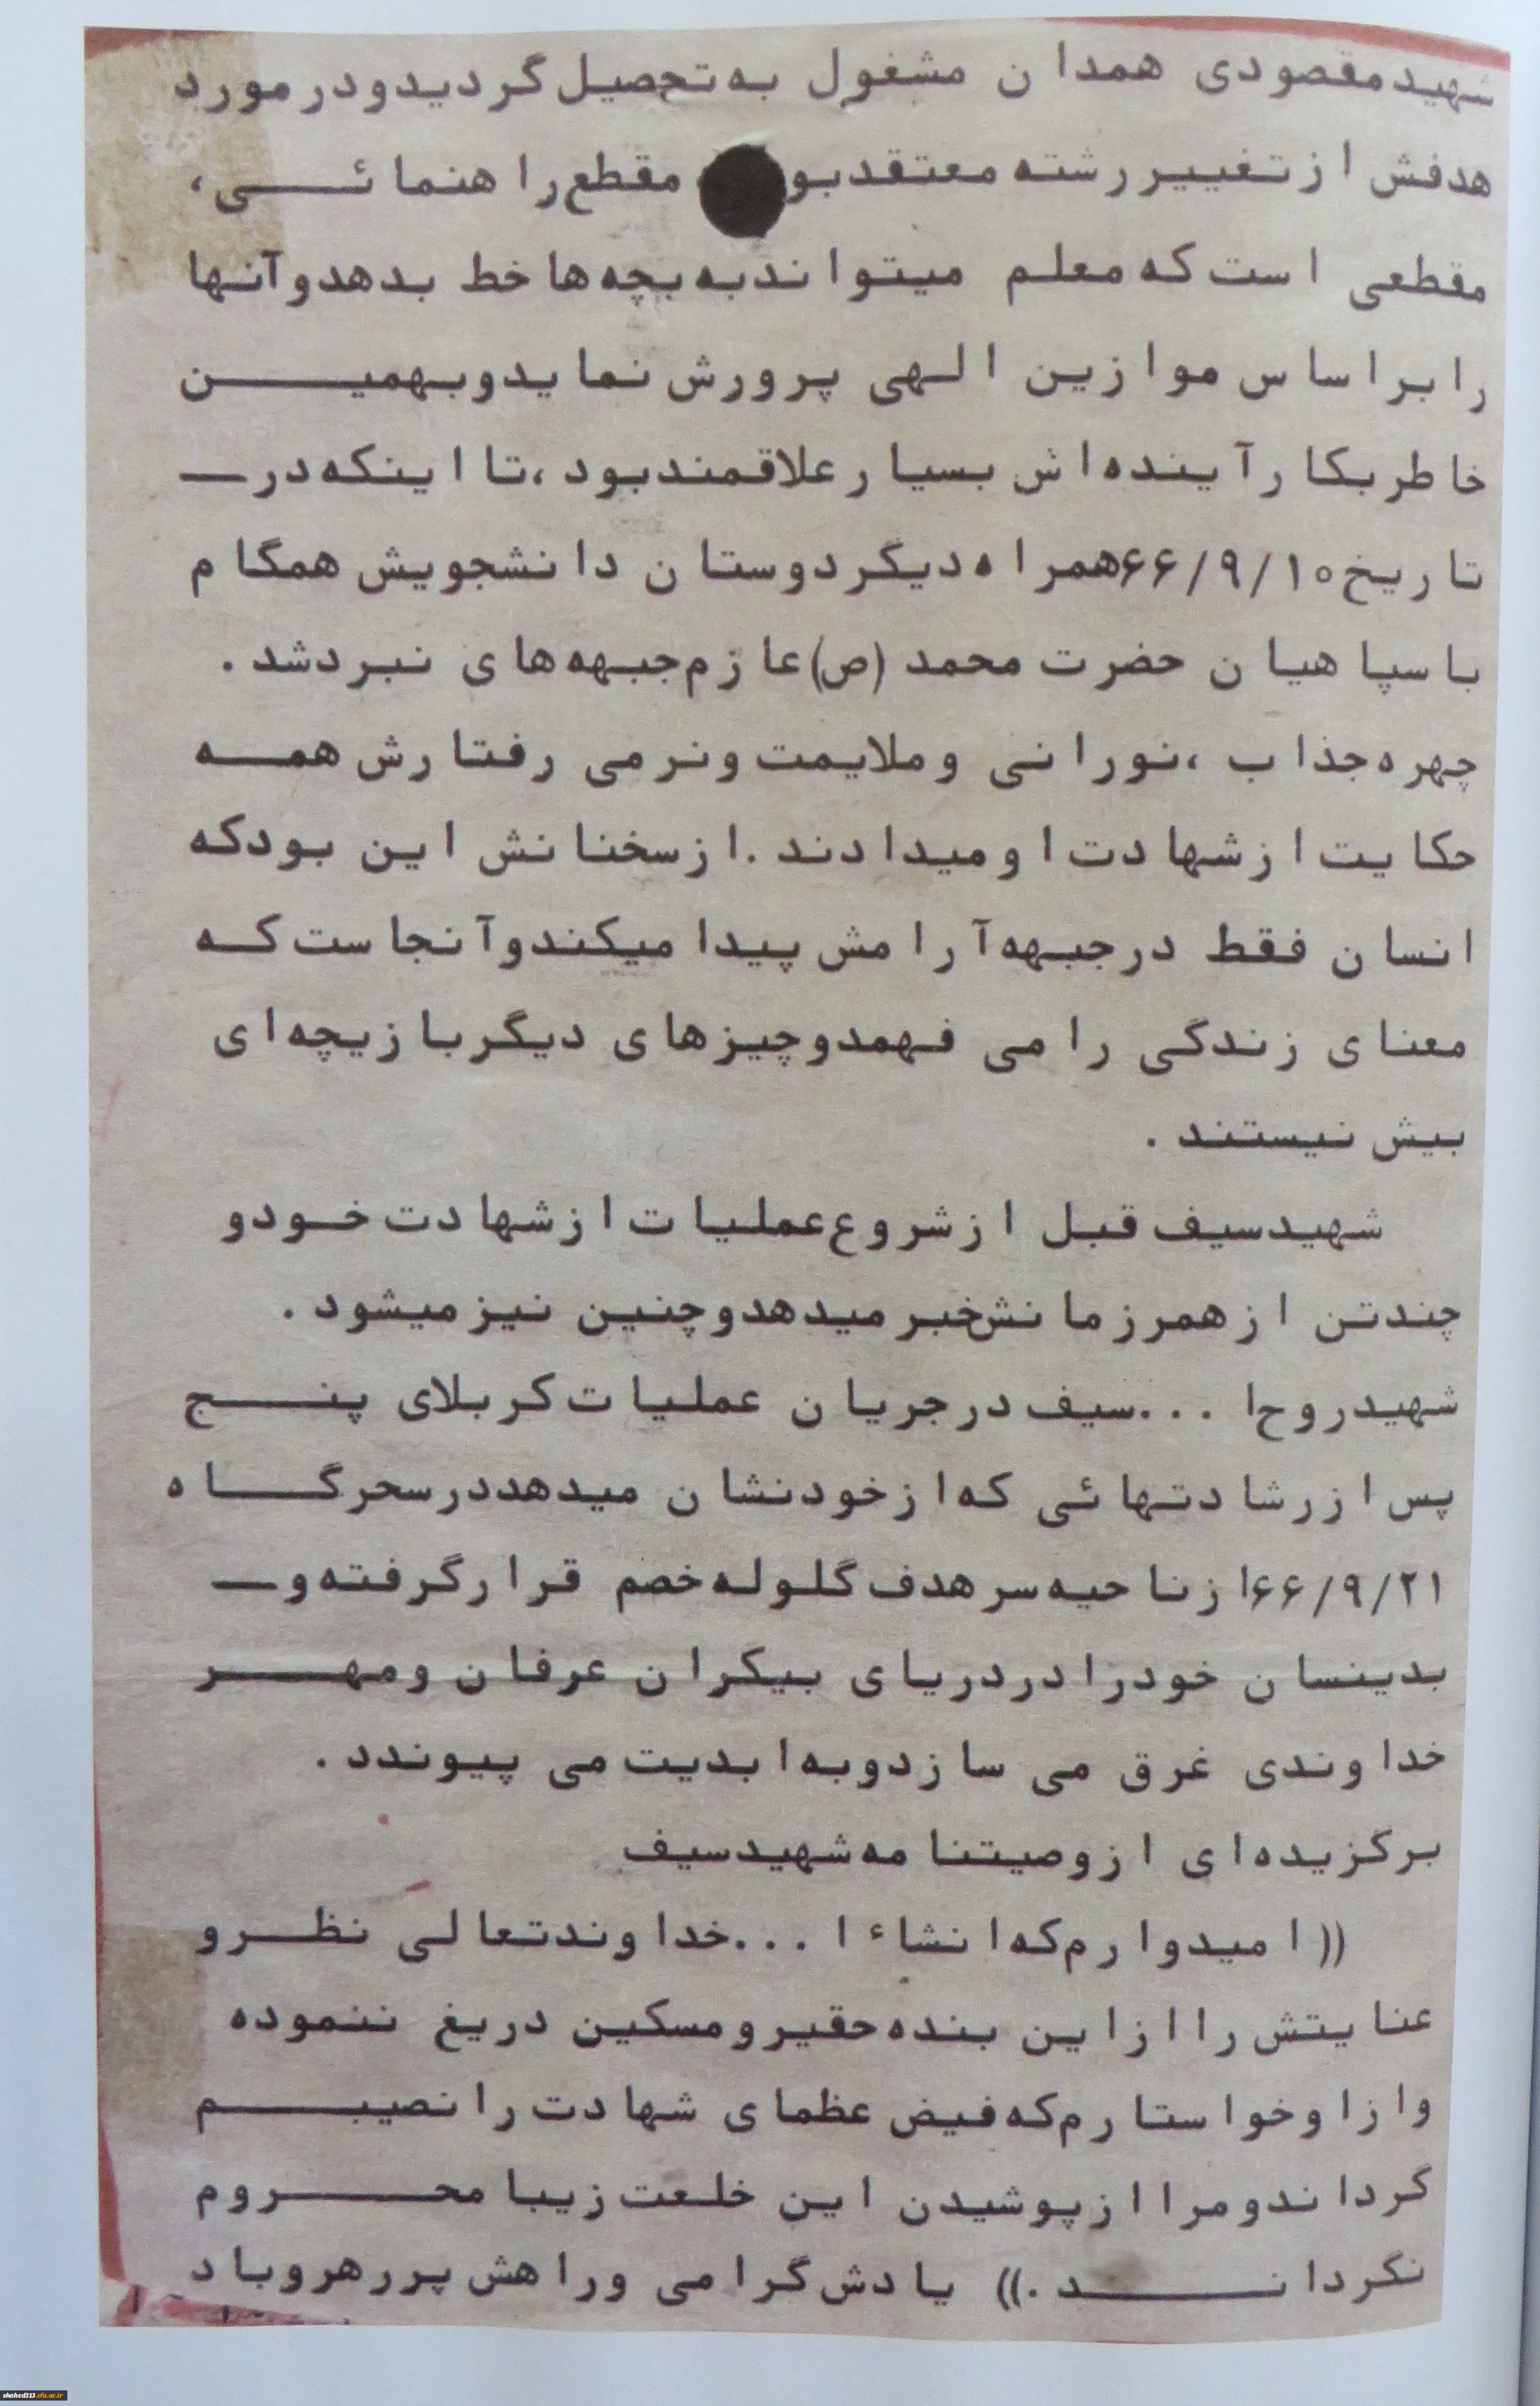 شهید مقصودی همدان مشغول به تحصیل گردید و در مورد
هدفش از تغییر رشته معتقد بو مقطع راهنمائی،
مقطعی است که معلم میتواند به بچه ها خط بدهد و آنها
را بر اساس موازین الهی پرورش نماید و بهمین
خاطر بکار آینده اش بسیار علاقمند بود، تا اینکه در
تاریخ ۶۶/۹/۱۰ همراه دیگر دوستان دانشجویش همگام
با سپاهیان حضرت محمد (ص) عازم جبهه های نبرد شد.
چهره جذاب، نورانی و ملایمت و نرمی رفتارش همه
حکایت از شهادت او میدادند. از سخنانش این بود که
انسان فقط در جبهه آرامش پیدا میکند و آنجاست که
معنای زندگی را می فهمد و چیزهای دیگر بازیچه ای
بیش نیستند.
شهید سیف قبل از شروع عملیات از شهادت خود و
چند تن از همرزمانش خبر میدهد و چنین نیز میشود.
شهید روح ا... سیف در جریان عملیات کربلای پنج
پس از رشادتهائی که از خود نشان میدهد در سحرگاه
۶۶/۹/۲۱ از ناحیه سر هدف گلوله خصم قرار گرفته و
بدینسان خود را در دریای بیکران عرفان و مهر
خداوندی غرق می سازد و به ابدیت می پیوندد.
برگزیده ای از وصیتنامه شهید سیف
((امیدوارم که انشاء ا... خداوند تعالی نظر و
عنایتش را از این بنده حقیر و مسکین دریغ ننموده
و از او خواستارم که فیض عظمای شهادت را نصیبم
گرداند و مرا از پوشیدن این خلعت زیبا محروم
نگرداند.)) یادش گرامی و راهش پر رهرو باد
shahed313.cfu.ac.ir